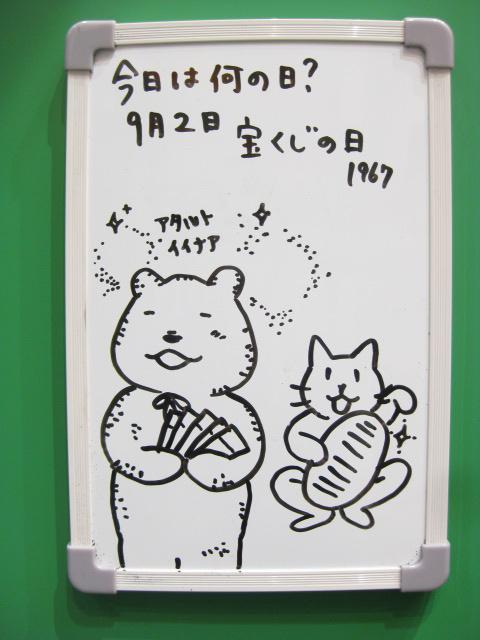 今日は何の日?
9月2日 宝くじの日
1967
アタルト
イイナア